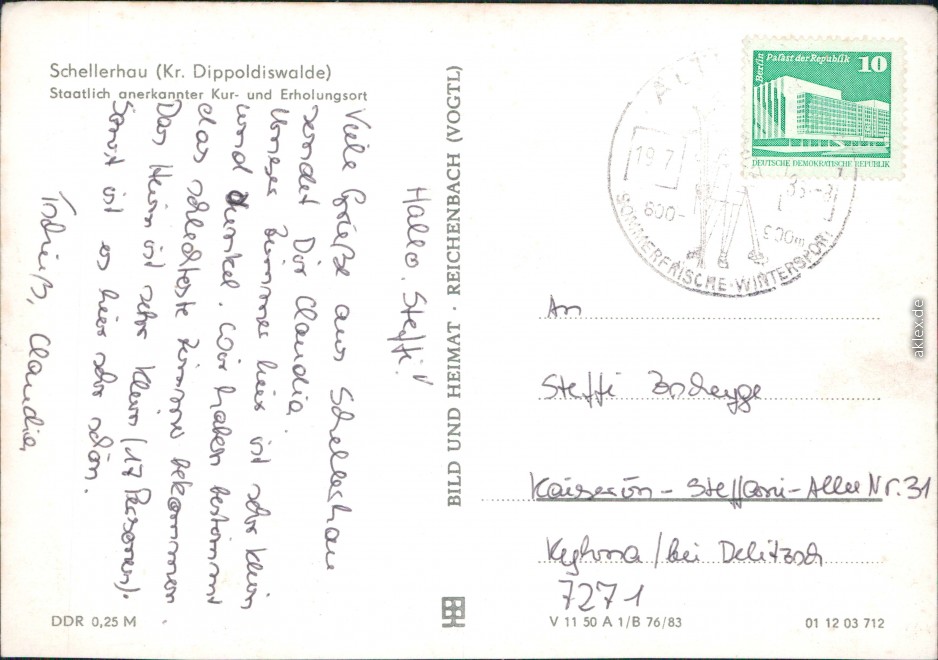 Schellerhau (Kr. Dippoldiswalde)
Staatlich anerkannter Kur- und Erholungsort
Hallo, Steffi!
Viele Grüße aus Schellerhau
sendet Dir Claudia.
Unser Zimmer hier ist sehr klein
und dunkel. Wir haben bestimmt
das schlechteste Zimmer bekommen.
Das Heim ist sehr klein (17 Personen).
Sonst ist es hier sehr schön.
Tschüß, Claudia
BILD UND HEIMAT · REICHENBACH (VOGTL)
Berlin Palast der Republik 10
DEUTSCHE DEMOKRATISCHE REPUBLIK
ALT
19.7
600-
900m
SOMMERFRISCHE · WINTERSPORT
An
Steffi
Nr. 31
Kyhna / bei Delitzsch
7271
DDR 0,25 M
V 11 50 A 1/B 76/83
01 12 03 712
akleX.de